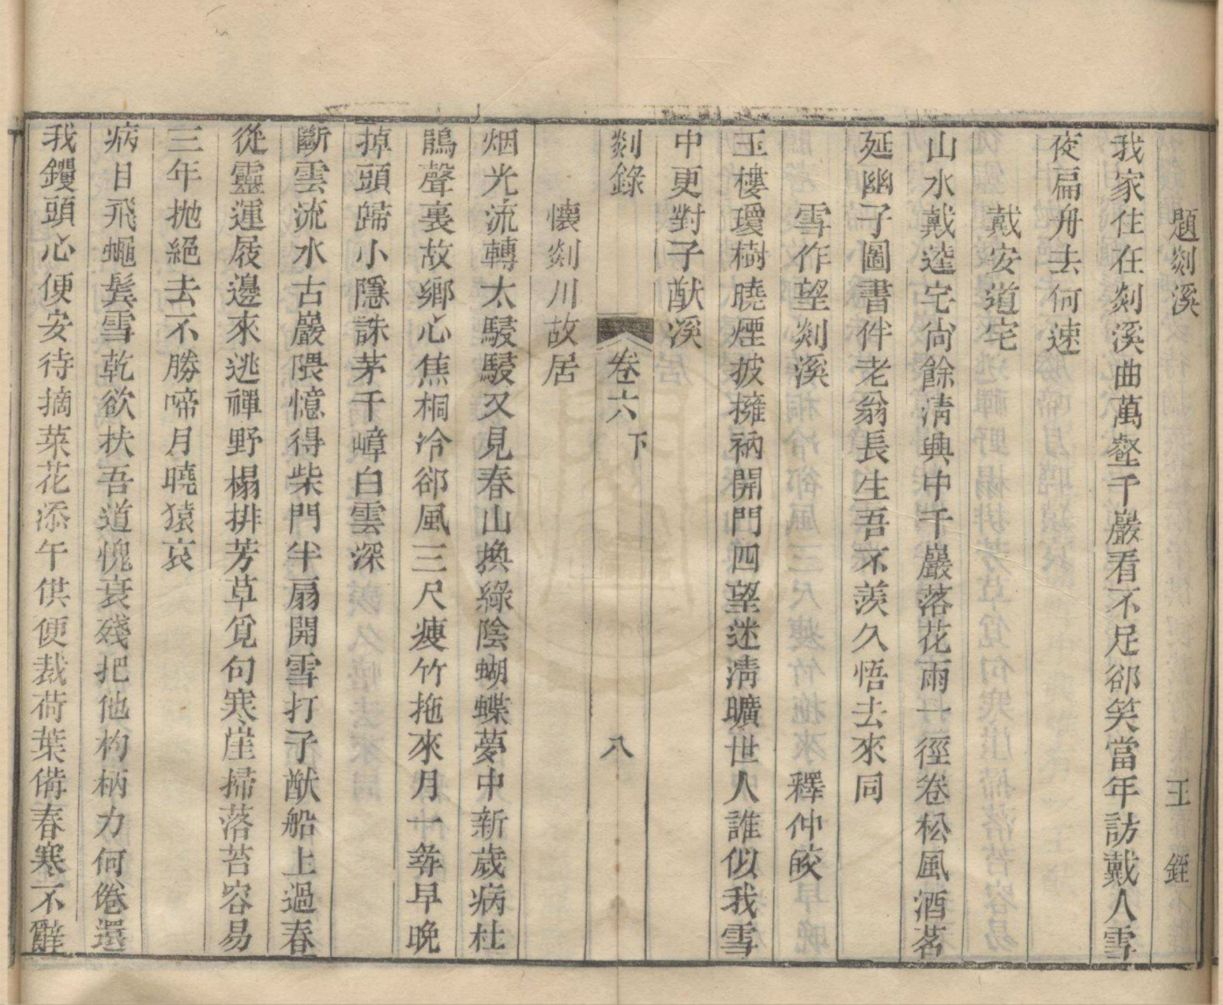 題剡溪 王銍
我家住在剡溪曲萬壑千巖看不足郤笑當年訪戴人雪
夜扁舟去何速
戴安道宅
山水戴逵宅尙餘淸興中千巖落花雨一徑卷松風酒茗
延幽子圖書伴老翁長生吾不羨久悟去來同
雪作望剡溪 釋仲皎
玉樓瓊樹曉煙披擁衲開門四望迷淸曠世人誰似我雪
中更對子猷溪
剡錄 卷六下 八
懷剡川故居
烟光流轉太駸駸又見春山換綠陰蝴蝶夢中新歲病杜
鵑聲裏故鄉心焦桐冷郤風三尺瘦竹拖來月一筭早晚
掉頭歸小隱誅茅千嶂白雲深
斷雲流水古巖隈憶得柴門半扇開雪打子猷船上過春
從靈運屐邊來逃禪野榻排芳草覓句寒崖掃落苔容易
三年抛絕去不勝啼月曉猿哀
病目飛蠅鬂雪乾欲扶吾道愧衰殘把他杓柄力何倦還
我钁頭心便安待摘菜花添午供便裁荷葉備春寒不辭